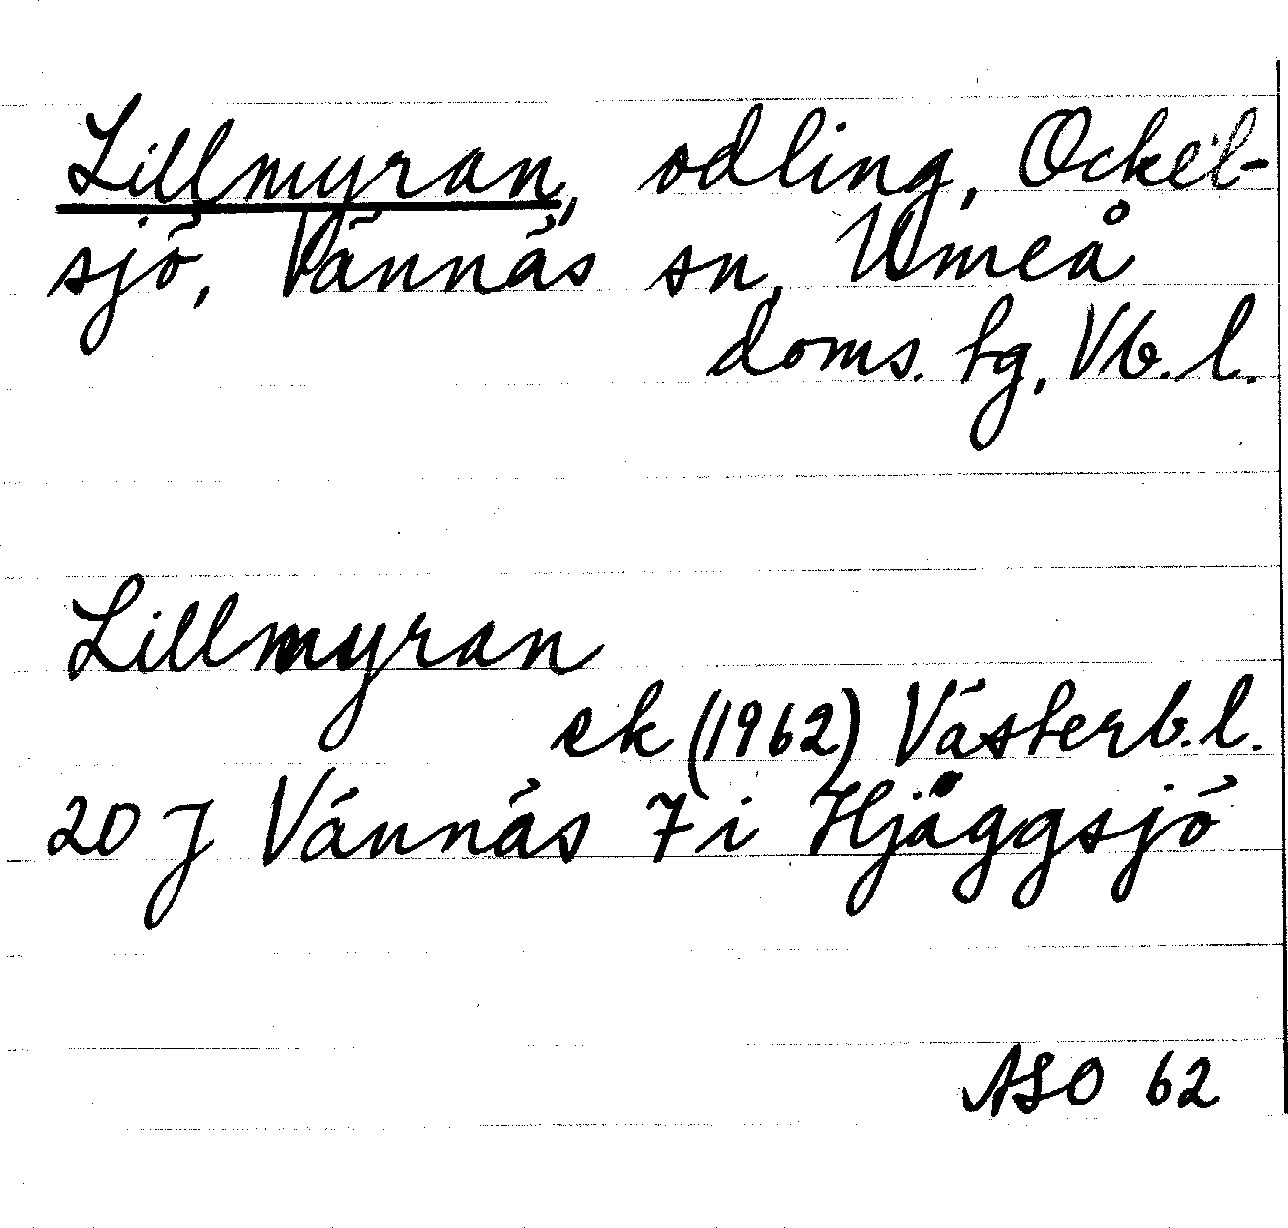 Lillmyran, odling, Ockel-
sjö, Vännäs sn, Umeå
doms. tg, Vb. l.
Lillmyran
ek (1962) Västerb. l.
20 J Vännäs 7 i Hjåggsjö
ASO 62